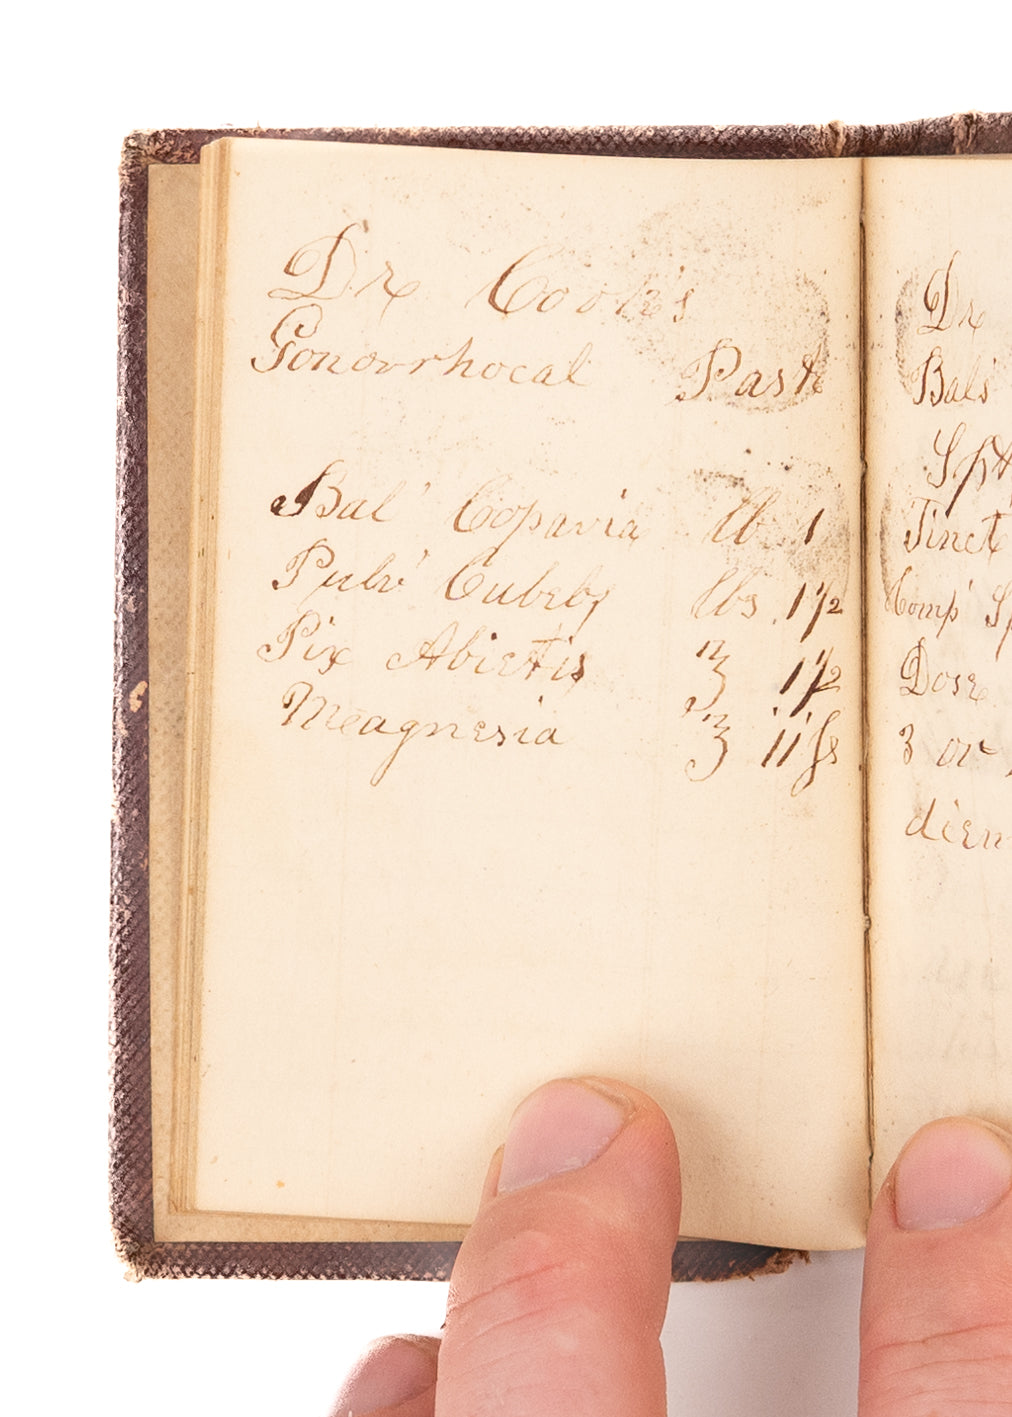 Dr Cook's
Gonorrhocal Past
Bal' Copavia lb 1
Pulv' Cubebs lbs 1 1/2
Pix Abietis ℥ 1 1/2
Meagnesia ℥ ii ſs
Dr
Bals'
Spt
Tinct
Comp' Sp
Dose
3 or
diem